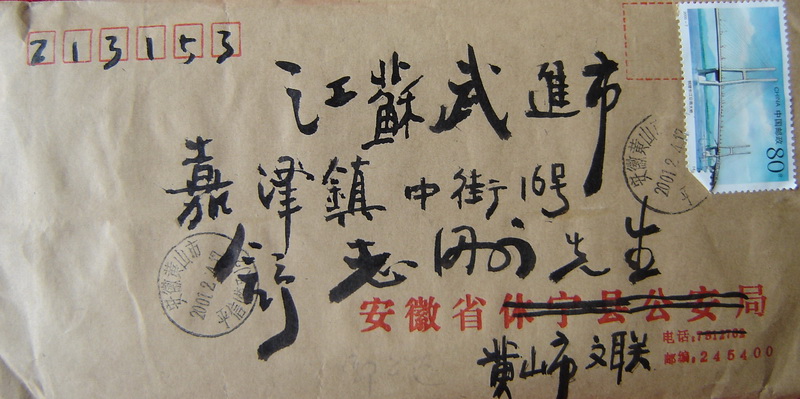 213153
江蘇武進市
嘉澤鎮中街16号
舒志刚先生
安徽省休宁县公安局
电话:7512702
邮编:245400
黄山市文联
中国邮政 CHINA
80
安徽黄山
2001.2.4.
安徽黄山市
2001.2.4.